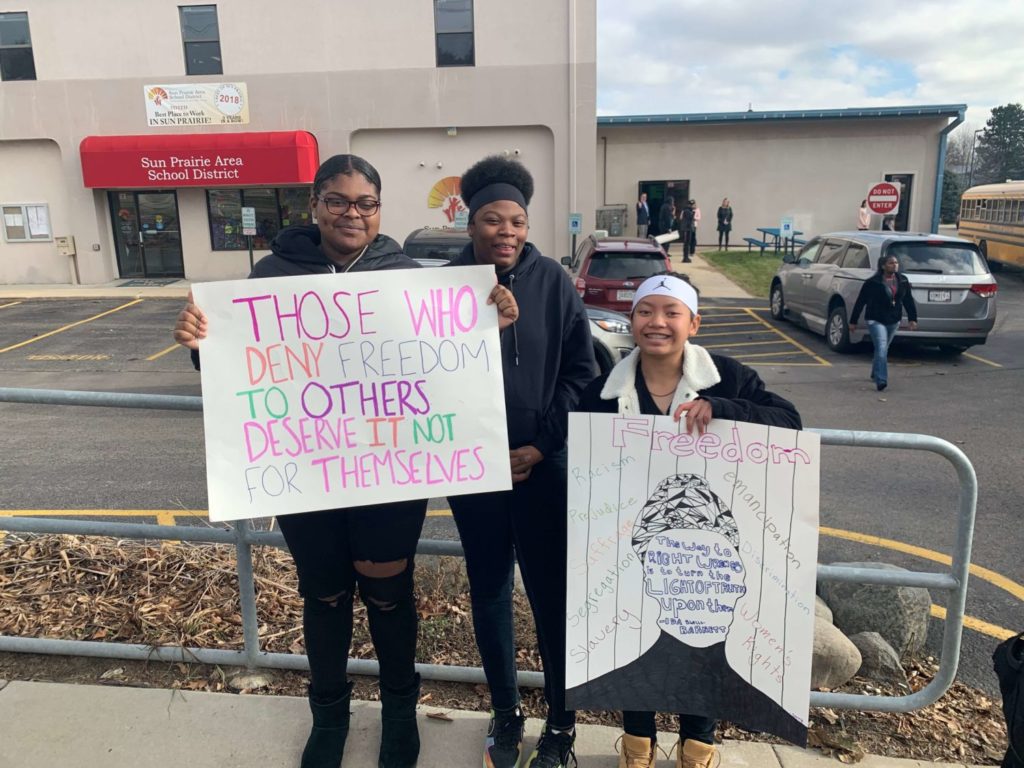 Sun Prairie Area
School District
2018
Best Place to Work
IN SUN PRAIRIE!
Sun Prairie Area
School District
DO NOT
ENTER
THOSE WHO
DENY FREEDOM
TO OTHERS
DESERVE IT NOT
FOR THEMSELVES
Freedom
Racism
Prejudice
Suffrage
Segregation
Slavery
emancipation
Discrimination
Women's
Rights
The way to
RIGHT WRONGS
is to turn the
LIGHT OF TRUTH
upon them
BARNETT